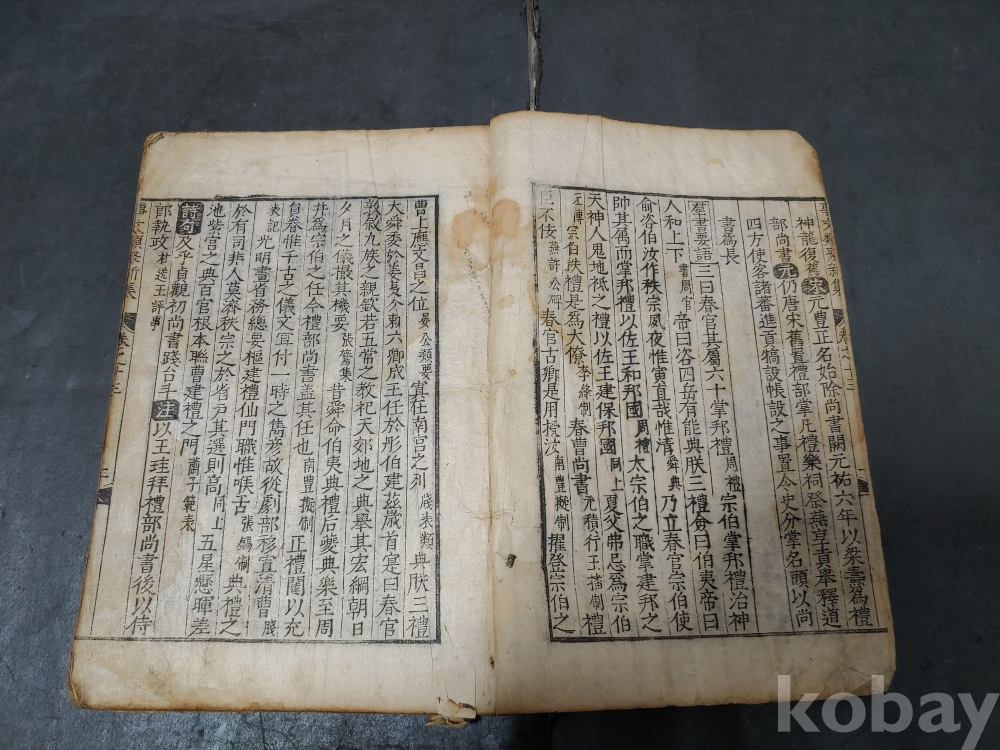 神龍復舊宋元豐正名始除尚書闕元祐六年以梁燾為禮
部尚書元仍唐宋舊置禮部掌凡禮樂祠祭燕享貢舉釋道
四方使客諸蕃進貢犒設帳設之事置令史分掌名頭以尚
書為長
羣書要語三曰春官其屬六十掌邦禮周禮宗伯掌邦禮治神
人和上下書周官帝曰咨四岳有能典朕三禮僉曰伯夷帝曰
俞咨伯汝作秩宗夙夜惟寅直哉惟清舜典乃立春官宗伯使
帥其屬而掌邦禮以佐王和邦國周禮太宗伯之職掌建邦之
天神人鬼地祗之禮以佐王建保邦國同上夏父弗忌為宗伯
左傳宗伯秩禮是為大僚李絳制春曹尚書元稹行王播制禮
臣不佞燕許公碑春官古卿是用授汝南豐擬制擢登宗伯之
曹上應文昌之位晏公類要寘在南宮之列牋表類典朕三禮
大舜委於姜夷今敕六卿成王任於彤伯建茲歲首寔曰春官
敦敘九族之親欽若五常之教祀天郊地之典舉其宏綱朝日
夕月之儀撮其機要張鷟集昔舜命伯夷典禮后夔典樂至周
并為宗伯之任今禮部尚書盖其任也南豐擬制正禮閣以充
自眷惟千古之儀文宜付一時之雋彥故從劇部移寘清曹牋
表記光明畫省務總要樞建禮仙門職惟喉舌張錫制典禮之
於有司非人莫濟秩宗之於省户其選則高同上五星懸暉差
池紫宮之典百官根本聯曹建禮之門蕭子範表
詩句及乎貞觀初尚書踐台斗注以王珪拜禮部尚書後以侍
郎執政杜送王評事
事文類聚新集 卷之十三